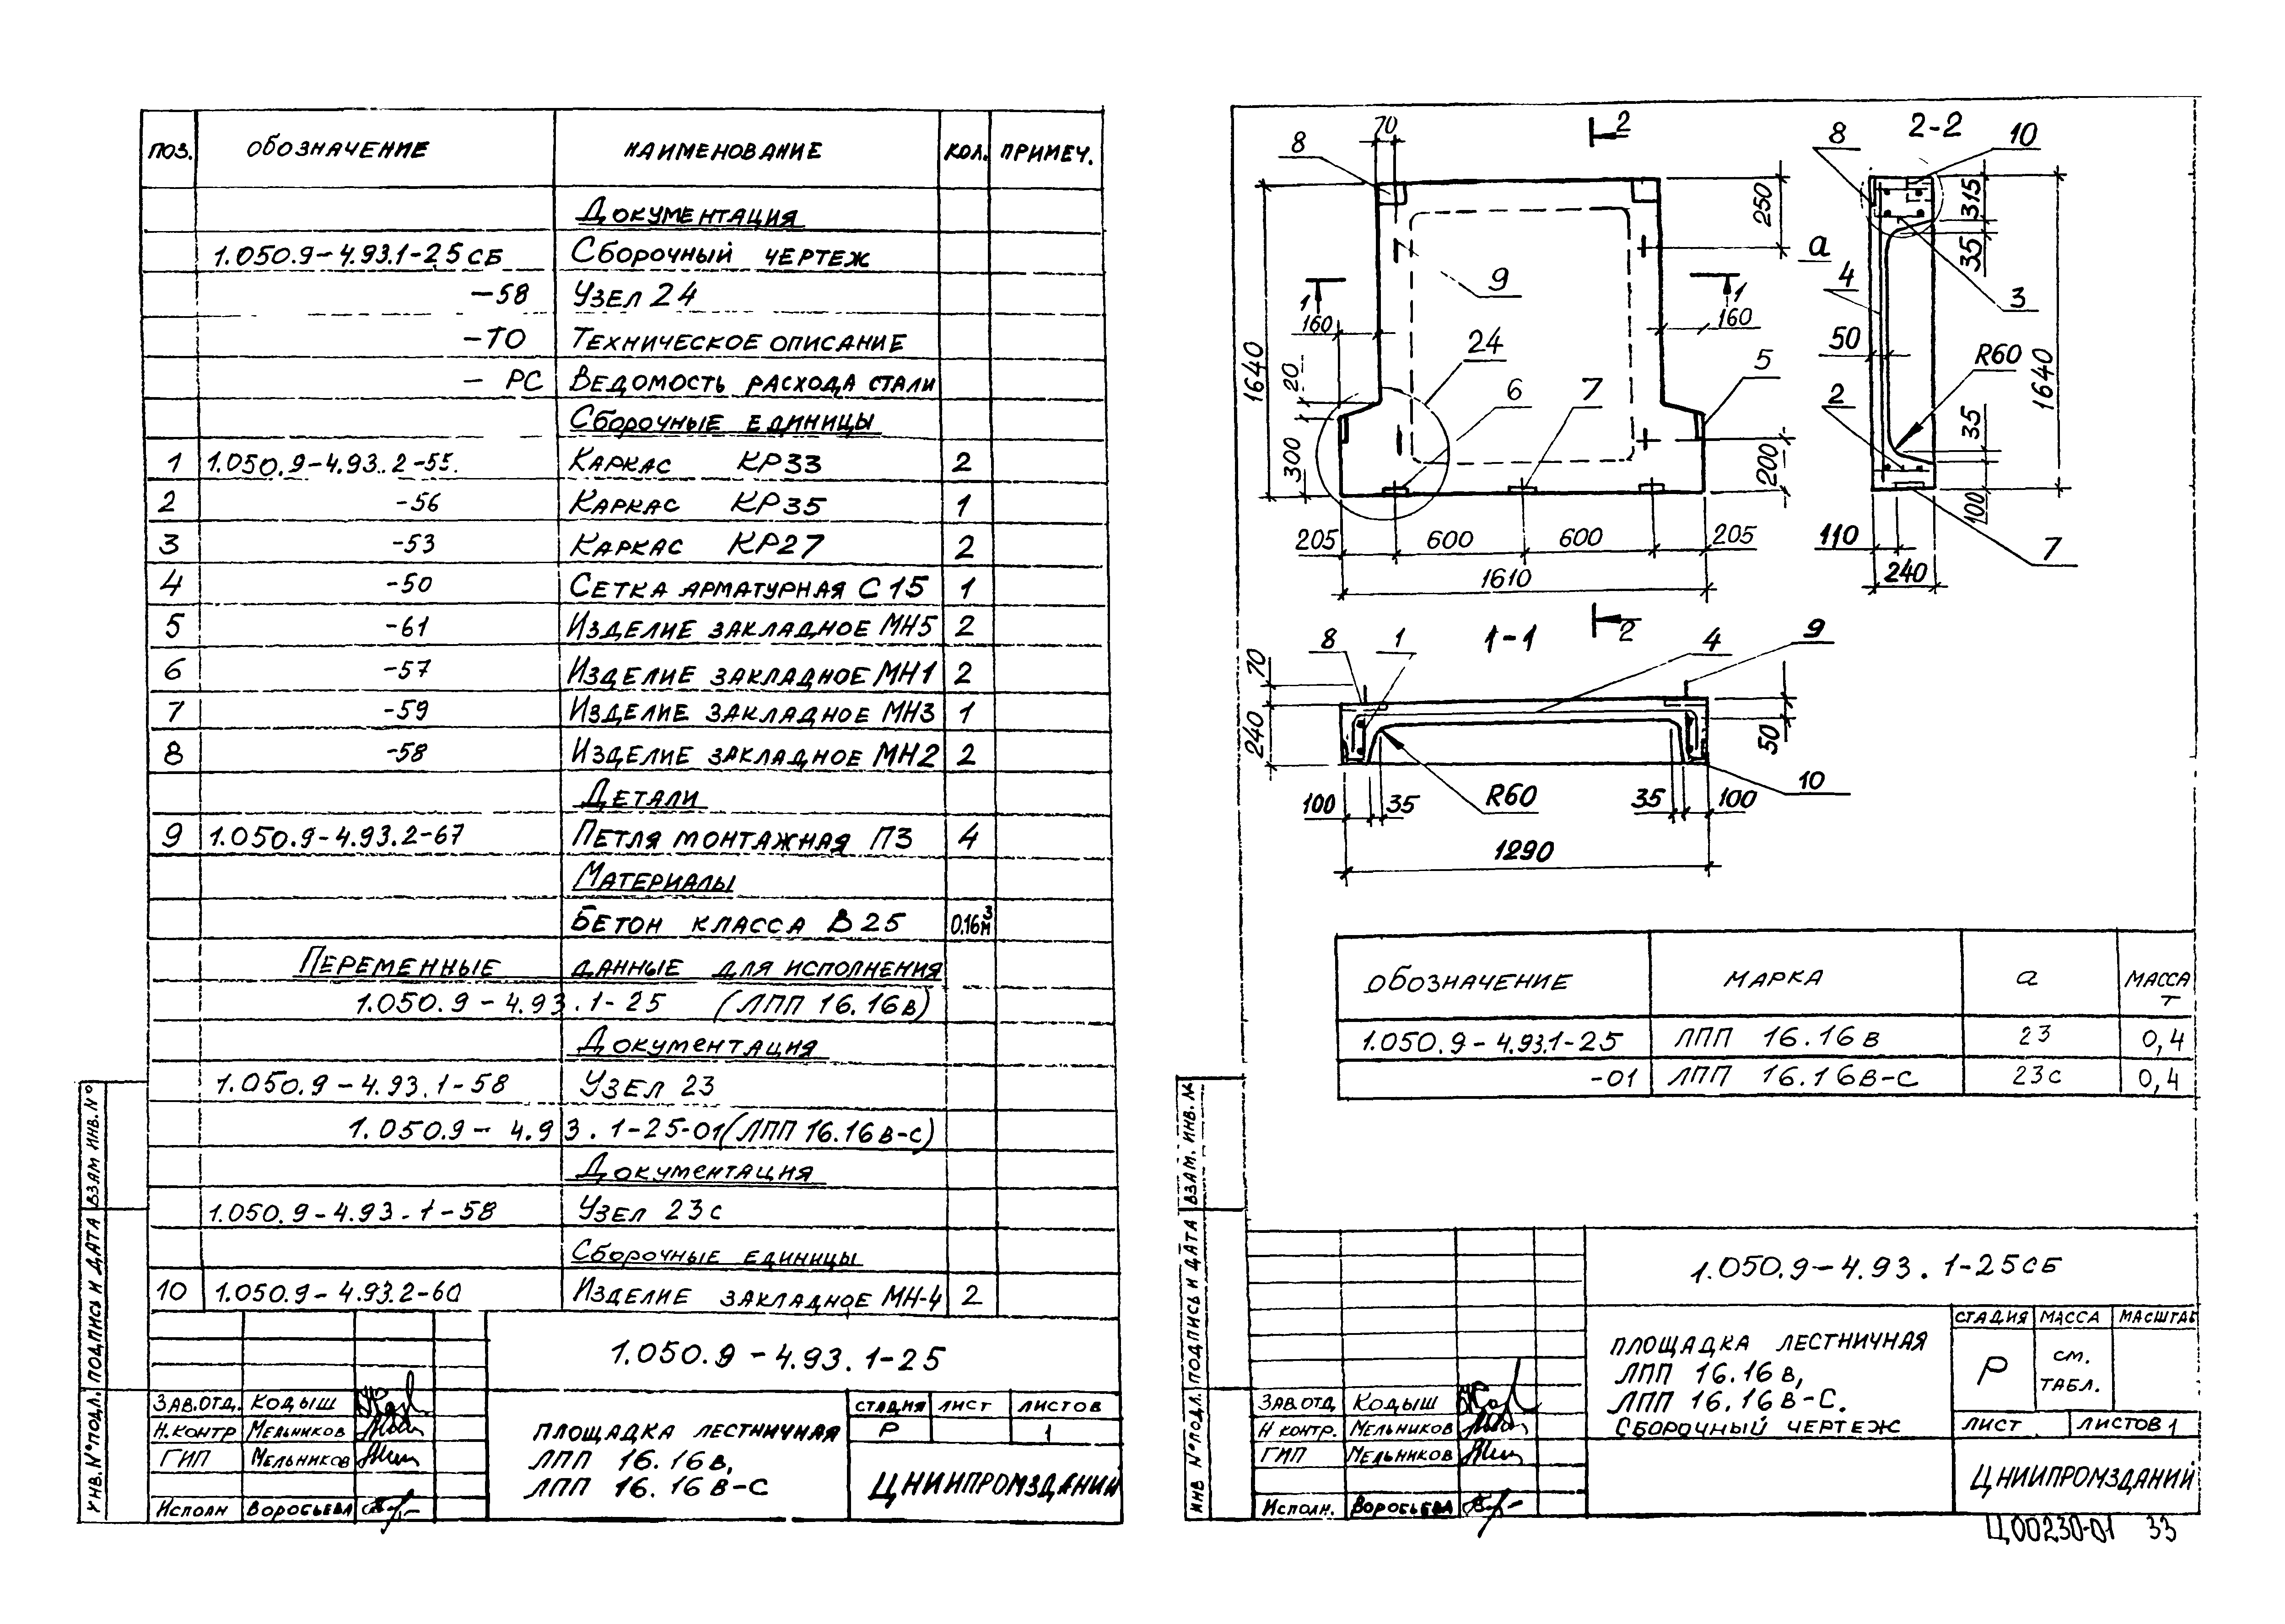 ПОЗ. ОБОЗНАЧЕНИЕ НАИМЕНОВАНИЕ КОЛ. ПРИМЕЧ.
ДОКУМЕНТАЦИЯ
1.050.9-4.93.1-25СБ СБОРОЧНЫЙ ЧЕРТЕЖ
-58 УЗЕЛ 24
-ТО ТЕХНИЧЕСКОЕ ОПИСАНИЕ
-РС ВЕДОМОСТЬ РАСХОДА СТАЛИ
СБОРОЧНЫЕ ЕДИНИЦЫ
1 1.050.9-4.93.2-55. КАРКАС КР33 2
2 -56 КАРКАС КР35 1
3 -53 КАРКАС КР27 2
4 -50 СЕТКА АРМАТУРНАЯ С15 1
5 -61 ИЗДЕЛИЕ ЗАКЛАДНОЕ МН5 2
6 -57 ИЗДЕЛИЕ ЗАКЛАДНОЕ МН1 2
7 -59 ИЗДЕЛИЕ ЗАКЛАДНОЕ МН3 1
8 -58 ИЗДЕЛИЕ ЗАКЛАДНОЕ МН2 2
ДЕТАЛИ
9 1.050.9-4.93.2-67 ПЕТЛЯ МОНТАЖНАЯ П3 4
МАТЕРИАЛЫ
БЕТОН КЛАССА В25 0.16м³
ПЕРЕМЕННЫЕ ДАННЫЕ ДЛЯ ИСПОЛНЕНИЯ
1.050.9-4.93.1-25 (ЛПП 16.16в)
ДОКУМЕНТАЦИЯ
1.050.9-4.93.1-58 УЗЕЛ 23
1.050.9-4.93.1-25-01(ЛПП 16.16в-с)
ДОКУМЕНТАЦИЯ
1.050.9-4.93.1-58 УЗЕЛ 23с
СБОРОЧНЫЕ ЕДИНИЦЫ
10 1.050.9-4.93.2-60 ИЗДЕЛИЕ ЗАКЛАДНОЕ МН-4 2
1.050.9-4.93.1-25
ЗАВ.ОТД. КОДЫШ
Н.КОНТР МЕЛЬНИКОВ
ГИП МЕЛЬНИКОВ
ИСПОЛН ВОРОБЬЕВА
ПЛОЩАДКА ЛЕСТНИЧНАЯ
ЛПП 16.16в,
ЛПП 16.16в-с
СТАДИЯ ЛИСТ ЛИСТОВ
Р 1
ЦНИИПРОМЗДАНИЙ
ИНВ.№ПОДЛ. ПОДПИСЬ И ДАТА ВЗАМ ИНВ.№
70
2
8
250
9
1
1
160
160
1640
24
20
6
7
5
300
200
205
600
600
205
1610
2
2-2
8
10
315
35
а
4
3
50
R60
1640
2
35
100
110
7
240
1-1
8
1
4
9
70
240
50
R60
10
100
35
35
100
1290
ОБОЗНАЧЕНИЕ МАРКА а МАССА т
1.050.9-4.93.1-25 ЛПП 16.16в 23 0,4
-01 ЛПП 16.16в-с 23с 0,4
1.050.9-4.93.1-25СБ
ЗАВ.ОТД КОДЫШ
Н КОНТР. МЕЛЬНИКОВ
ГИП МЕЛЬНИКОВ
ИСПОЛН. ВОРОБЬЕВА
ПЛОЩАДКА ЛЕСТНИЧНАЯ
ЛПП 16.16в,
ЛПП 16.16в-с.
СБОРОЧНЫЙ ЧЕРТЕЖ
СТАДИЯ МАССА МАСШТАБ
Р СМ. ТАБЛ.
ЛИСТ ЛИСТОВ 1
ЦНИИПРОМЗДАНИЙ
ИНВ №ПОДЛ. ПОДПИСЬ И ДАТА ВЗАМ. ИНВ. №
Ц00230-01 33